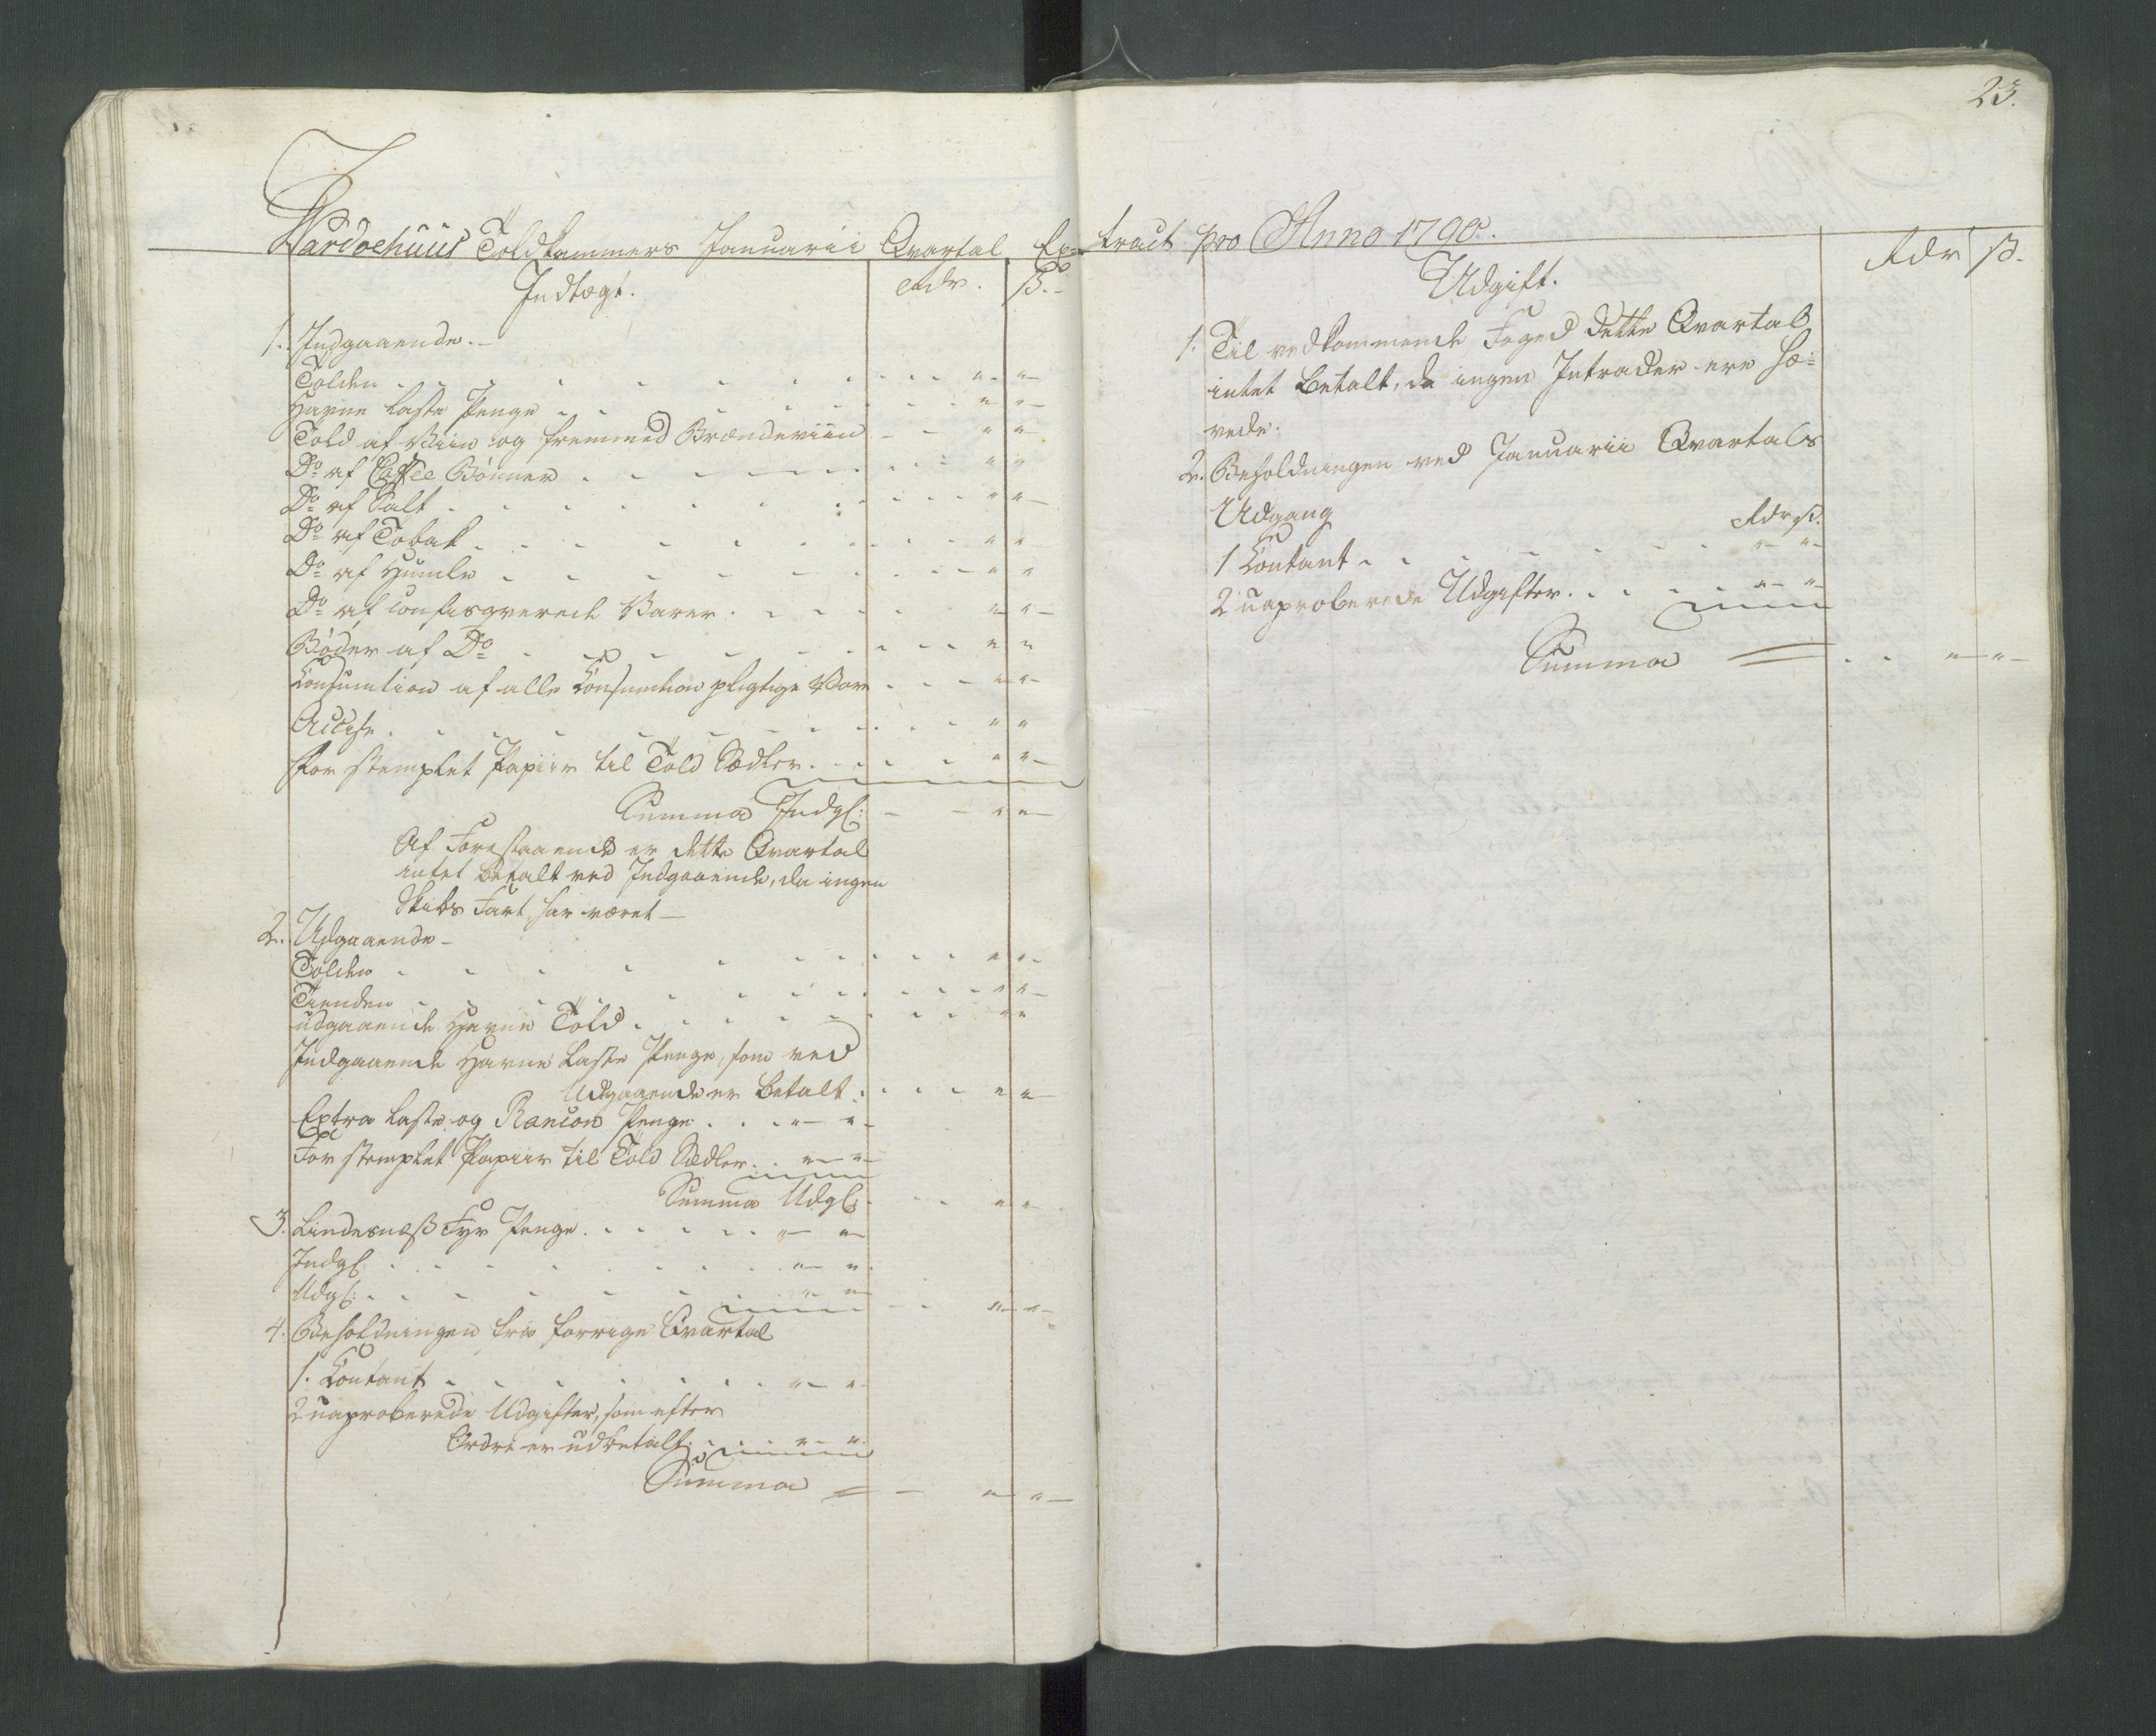 23.
Wardoehuus Toldkammers Januarii Qvartal Ex-
tract pro Anno 1790.
Indtægt. Rdr. ß.
1. Indgaaende.
Tolden . . . " "
Havne Laste Penge . . . " "
Told af Viin og fremmed Brændeviin - - " "
Do af Coffee Bønner . . . " "
Do af Salt . . . " "
Do af Tobak . . . " "
Do af Humle . . . " "
Do af confisqverede Varer . . . " "
Bøder af Do . . . " "
Consumtion af alle Consumtion pligtige Vare . . . " "
Accise . . . " "
For stemplet Papiir til Told Sedler . . . " "
Summa Indg: - - " "
Af Forestaaende er dette Qvartal
intet betalt ved Indgaaende, da ingen
Skibs Fart har været —
2. Udgaaende -
Tolden . . . " "
Tienden . . . " "
udgaaende Havne Told . . . " "
Indgaaende Havne Laste Penge, som ved
Udgaaende er betalt . . . " "
Extra Laste og Rancon Penge . . . " "
For stemplet Papiir til Told Sedler . . " "
Summa Udg: . . . " "
3. Lindesnæss Fyr Penge . . . " "
Indg: . . . " "
Udg: . . . " "
4. Beholdningen fra forrige Qvartal
1. Contant . . . " "
2 uaproberede Udgifter, som efter
Ordre er udbetalt . . . " "
Summa = - " "
Udgift. Rdr ß.
1. Til vedkommende Foged dette Qvartal
intet betalt, da ingen Intrader ere hæ-
vede.
2. Beholdningen ved Januarii Qvartals
Udgang Rdr ß.
1 Contant . . . " "
2 uaproberede Udgifter . . . " "
Summa = . . " "